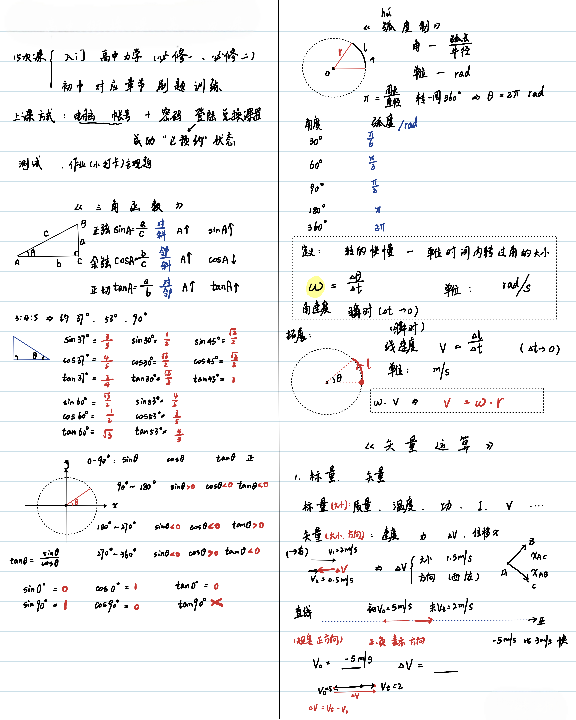 15次课 { 入门 高中力学 (必修一、必修二)
初中对应章节刷题训练
上课方式: 电脑 帐号 + 密码 登陆
成功 "已预约" 状态
测试
《三角函数》
B
c
a
A θ b C
正弦 sinA = a/c 对/斜 A↑ sinA↑
余弦 cosA = b/c 邻/斜 A↑ cosA↓
正切 tanA = a/b 对/邻 A↑ tanA↑
3:4:5 ⇒ 约 37°、53°、90°
sin37° = 3/5 sin30° = 1/2 sin45° = √2/2
cos37° = 4/5 cos30° = √3/2 cos45° = √2/2
tan37° = 3/4 tan30° = √3/3 tan45° = 1
sin60° = √3/2 sin53° = 4/5
cos60° = 1/2 cos53° = 3/5
tan60° = √3 tan53° = 4/3
0~90°: sinθ cosθ tanθ 正
90°~180° sinθ>0 cosθ<0 tanθ<0
180°~270° sinθ<0 cosθ<0 tanθ>0
tanθ = sinθ/cosθ 270°~360° sinθ<0 cosθ>0 tanθ<0
sin0° = 0 cos0° = 1 tan0° = 0
sin90° = 1 cos90° = 0 tan90° ×
hú
《弧度制》
角 = 弧长/半径
单位 — rad
π = 周长/直径 转一周360° ⇒ θ = 2π rad
角度 弧度/rad
30° π/6
60° π/3
90° π/2
180° π
360° 2π
定义: 转的快慢 — 单位时间内转过角的大小
ω = Δθ/Δt 单位: rad/s
角速度 瞬时 (Δt→0)
拓展: (瞬时)
线速度 V = Δl/Δt (Δt→0)
单位: m/s
ω、V ⇒ V = ω·r
《矢量运算》
1. 标量、矢量
标量(大小): 质量、温度、功、I、V ....
矢量(大小、方向): 速度 ΔV、位移x
V₀=0.5m/s ΔV ⇒ ΔV { 大小 1.5m/s
方向
A B C
x_AC
x_AB
直线 初V₀=5m/s 末Vt=2m/s
(规定正方向) 正、负表示方向 -5m/s 比 3m/s 快
V₀ = -5m/s ΔV = ____
V₀=5 ΔV Vt=2
ΔV = Vt - V₀